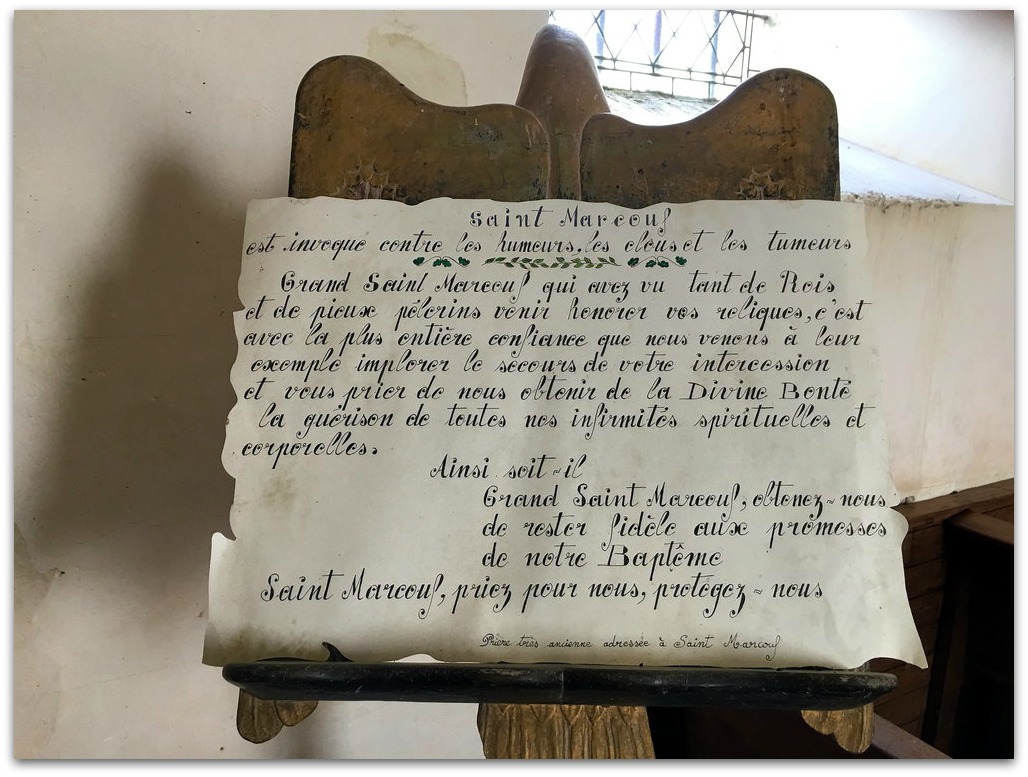 Saint Marcouf
est invoque contre les humeurs, les clous et les tumeurs
Grand Saint Marcouf qui avez vu tant de Rois
et de pieux pélerins venir honorer vos reliques, c'est
avec la plus entière confiance que nous venons à leur
exemple implorer le secours de votre intercession
et vous prier de nous obtenir de la Divine Bonté
la guérison de toutes nos infirmités spirituelles et
corporelles.
Ainsi soit-il
Grand Saint Marcouf, obtenez-nous
de rester fidèle aux promesses
de notre Baptême
Saint Marcouf, priez pour nous, protégez-nous
Prière très ancienne adressée à Saint Marcouf